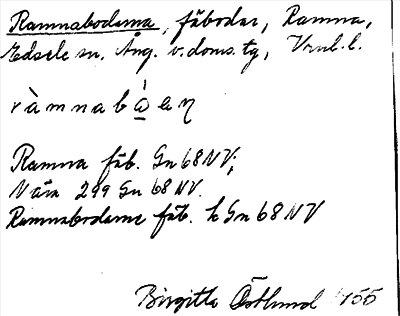 Ramnabodarna, fäbodar, Ramna,
Edsele sn. Ång. v. doms. tg, Vrnl. l.
ràmnabò̱aɳ
Ramna fäb. Gn 68 NV;
Nära 299 Gn 68 NV.
Ramnabodarne fäb. h Gn 68 NV
Birgitta Östlund 1955